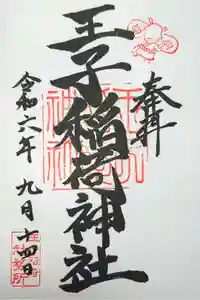 奉拝
王子稲荷神社
令和六年 九月 十四日